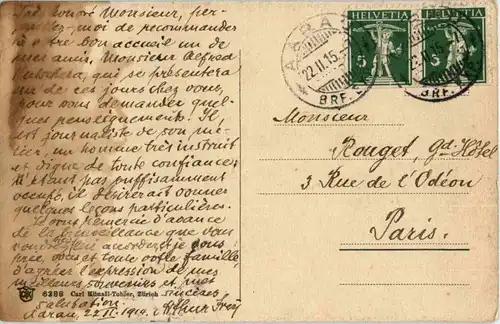 Très honoré Monsieur, per-
mettez-moi de recommander
à votre bon accueil un de
mes amis. Monsieur Alfred
qui se présentera
un de ces jours chez vous,
pour vous demander quel-
ques renseignements. Il
est journaliste de son mé-
tier, un homme très instruit
et digne de toute confiance,
N'étant pas suffisamment
occupé, il désirerait donner
quelques leçons particulières.
Je vous remercie d'avance
de la bienveillance que vous
voudrez lui accorder et je vous
prie, vous et toute votre famille,
d'agréer l'expression de mes
meilleurs souvenirs et mes
sincères
salutations.
Aarau, 22. II. Arthur Frey
6286 Carl Künzli-Tobler, Zürich
HELVETIA HELVETIA
5 5
AARAU
22.II.15
BRF.
Monsieur
Rouget, Gd. Hôtel
3 Rue de l'Odéon
Paris.